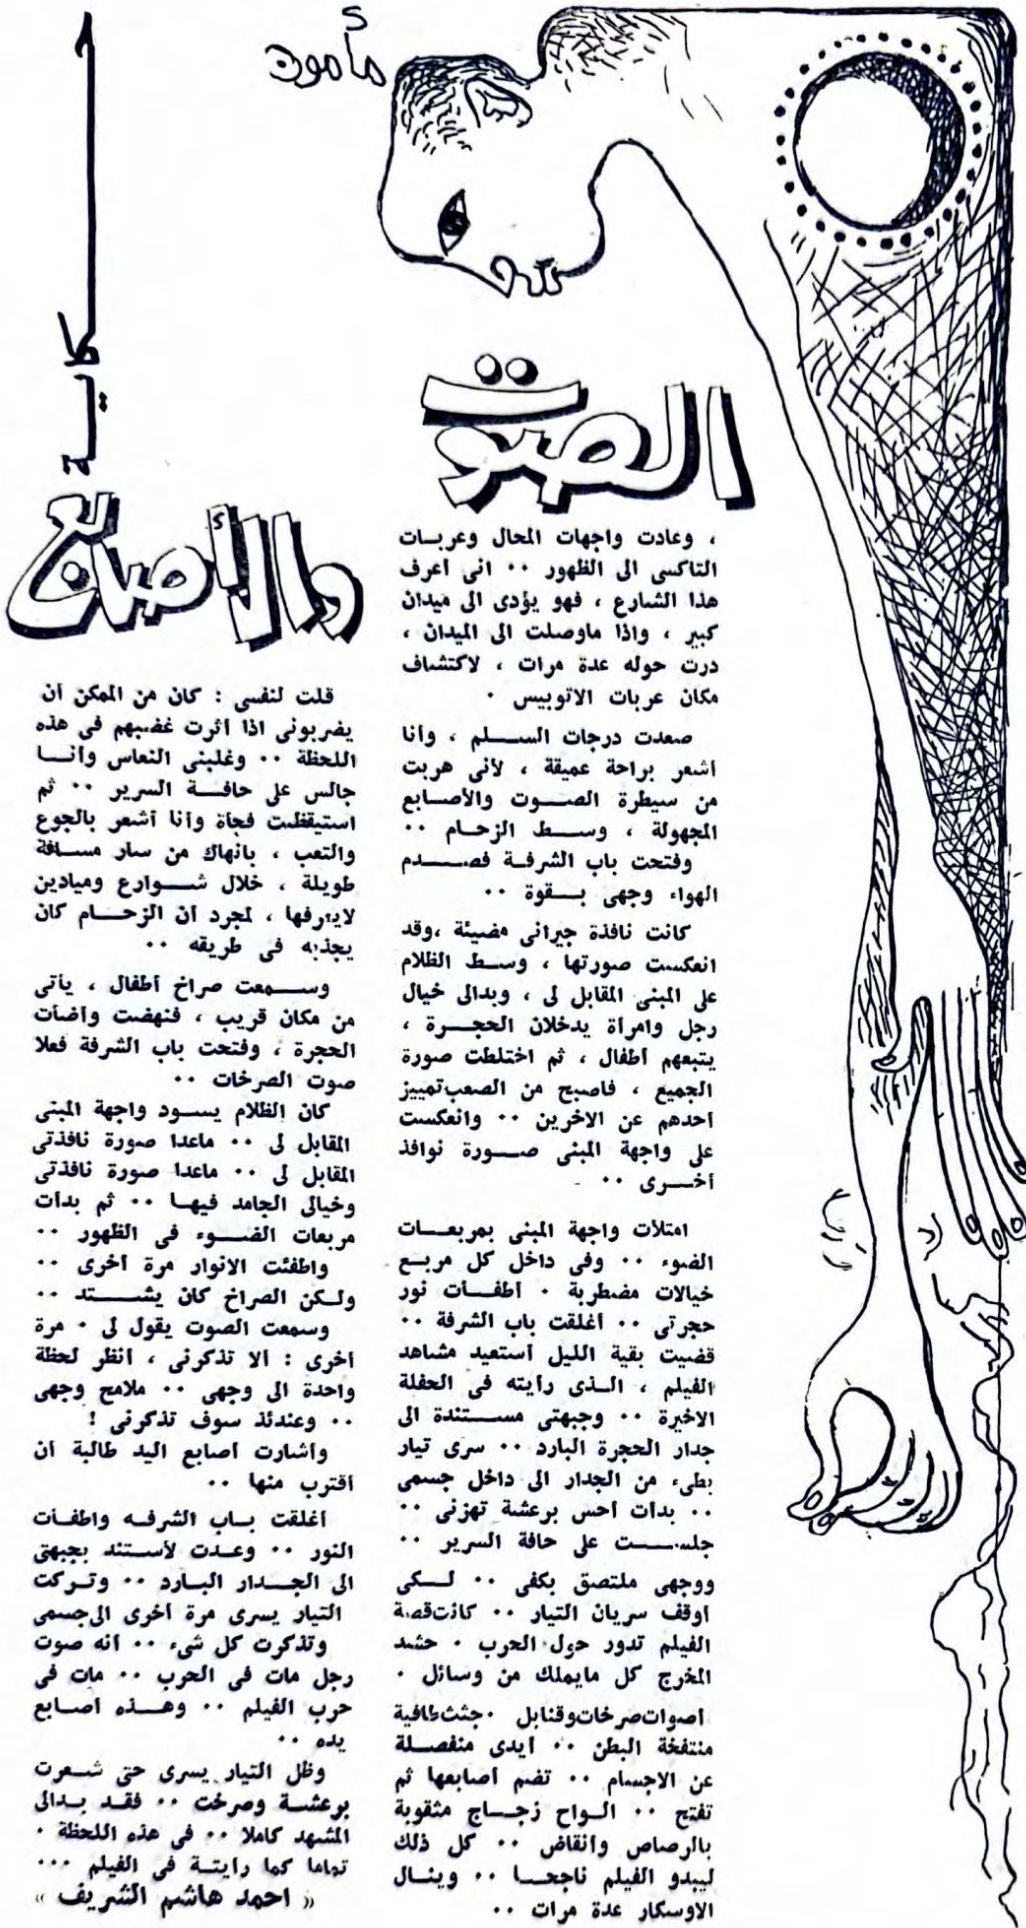 مأمون
حكاية
الصوت
والأصابع
، وعادت واجهات المحال وعربات
التاكسى الى الظهور ٠٠ انى أعرف
هذا الشارع ، فهو يؤدى الى ميدان
كبير ، واذا ماوصلت الى الميدان ،
درت حوله عدة مرات ، لاكتشاف
مكان عربات الاتوبيس ٠
صعدت درجات السلم ، وأنا
أشعر براحة عميقة ، لأنى هربت
من سيطرة الصوت والأصابع
المجهولة ، وسط الزحام ٠٠
وفتحت باب الشرفة فصدم
الهواء وجهى بقوة ٠٠
كانت نافذة جيرانى مضيئة ،وقد
انعكست صورتها ، وسط الظلام
على المبنى المقابل لى ، وبدالى خيال
رجل وامرأة يدخلان الحجرة ،
يتبعهم أطفال ، ثم اختلطت صورة
الجميع ، فاصبح من الصعب تمييز
أحدهم عن الاخرين ٠٠ وانعكست
على واجهة المبنى صورة نوافذ
أخرى ٠٠
امتلأت واجهة المبنى بمربعات
الضوء ٠٠ وفى داخل كل مربع
خيالات مضطربة ٠ أطفأت نور
حجرتى ٠٠ أغلقت باب الشرفة ٠٠
قضيت بقية الليل أستعيد مشاهد
الفيلم ، الذى رأيته فى الحفلة
الاخيرة ٠٠ وجبهتى مستندة الى
جدار الحجرة البارد ٠٠ سرى تيار
بطىء من الجدار الى داخل جسمى
٠٠ بدأت أحس برعشة تهزنى ٠٠
جلست على حافة السرير ٠٠
ووجهى ملتصق بكفى ٠٠ لكى
أوقف سريان التيار ٠٠ كانت قصة
الفيلم تدور حول الحرب ٠ حشد
المخرج كل مايملك من وسائل ٠
أصوات صرخات وقنابل ٠جثث طافية
منتفخة البطن ٠٠ أيدى منفصلة
عن الاجسام ٠٠ تضم أصابعها ثم
تفتح ٠٠ الواح زجاج مثقوبة
بالرصاص وانقاض ٠٠ كل ذلك
ليبدو الفيلم ناجحا ٠٠ وينال
الاوسكار عدة مرات ٠٠
قلت لنفسى : كان من الممكن أن
يضربونى اذا أثرت غضبهم فى هذه
اللحظة ٠٠ وغلبنى النعاس وأنا
جالس على حافة السرير ٠٠ ثم
استيقظت فجأة وأنا أشعر بالجوع
والتعب ، بانهاك من سار مسافة
طويلة ، خلال شوارع وميادين
لايعرفها ، لمجرد أن الزحام كان
يجذبه فى طريقه ٠٠
وسمعت صراخ أطفال ، يأتى
من مكان قريب ، فنهضت وأضأت
الحجرة ، وفتحت باب الشرفة فعلا
صوت الصرخات ٠٠
كان الظلام يسود واجهة المبنى
المقابل لى ٠٠ ماعدا صورة نافذتى
المقابل لى ٠٠ ماعدا صورة نافذتى
وخيالى الجامد فيها ٠٠ ثم بدأت
مربعات الضوء فى الظهور ٠٠
واطفئت الانوار مرة أخرى ٠٠
ولكن الصراخ كان يشتد ٠٠
وسمعت الصوت يقول لى ٠ مرة
أخرى : ألا تذكرنى ، أنظر لحظة
واحدة الى وجهى ٠٠ ملامح وجهى
٠٠ وعندئذ سوف تذكرنى !
وأشارت أصابع اليد طالبة أن
أقترب منها ٠٠
أغلقت باب الشرفه واطفأت
النور ٠٠ وعدت لأستند بجبهتى
الى الجدار البارد ٠٠ وتركت
التيار يسرى مرة أخرى الى جسمى
وتذكرت كل شىء ٠٠ انه صوت
رجل مات فى الحرب ٠٠ مات فى
حرب الفيلم ٠٠ وهذه أصابع
يده ٠٠
وظل التيار يسرى حتى شعرت
برعشة وصرخت ٠٠ فقد بدالى
المشهد كاملا ٠٠ فى هذه اللحظة ٠
تماما كما رأيتة فى الفيلم ٠٠٠
« احمد هاشم الشريف »